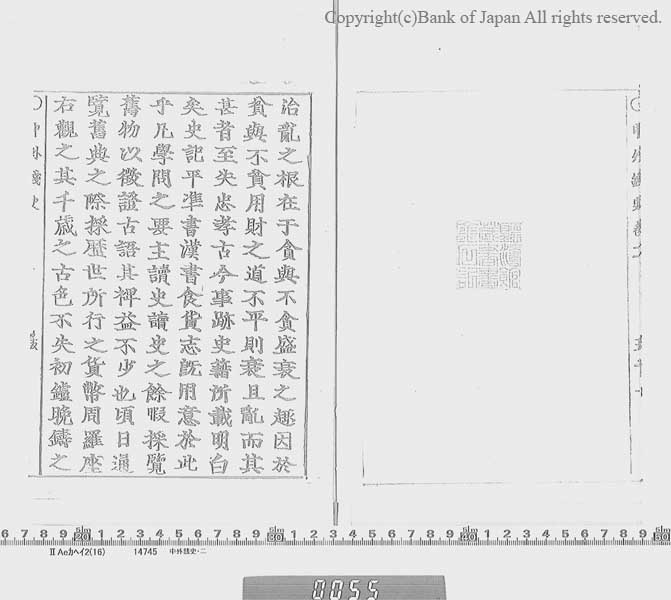 Copyright(c)Bank of Japan All rights reserved.
治亂之根在于貪與不貪盛衰之趣因於
貪與不貪用財之道不平則衰且亂而其
甚者至失忠孝古今事跡史籍所載明白
矣史記平準書漢書食貨志既用意於此
乎凡學問之要主讀史讀史之餘暇採覽
舊物以徵證古語其裨益不少也頃日遍
覽舊典之際採歷世所行之貨幣周羅座
右觀之其千歲之古色不失初鑪晩鑄之
6 7 8 9 20 1 2 3 4 5 6 7 8 9 30 1 2 3 4 5 6 7 8 9 40 1 2 3 4 5 6 7 8 9 50
II Aeカヘイ2(16) 14745 中外錢史・二
0055